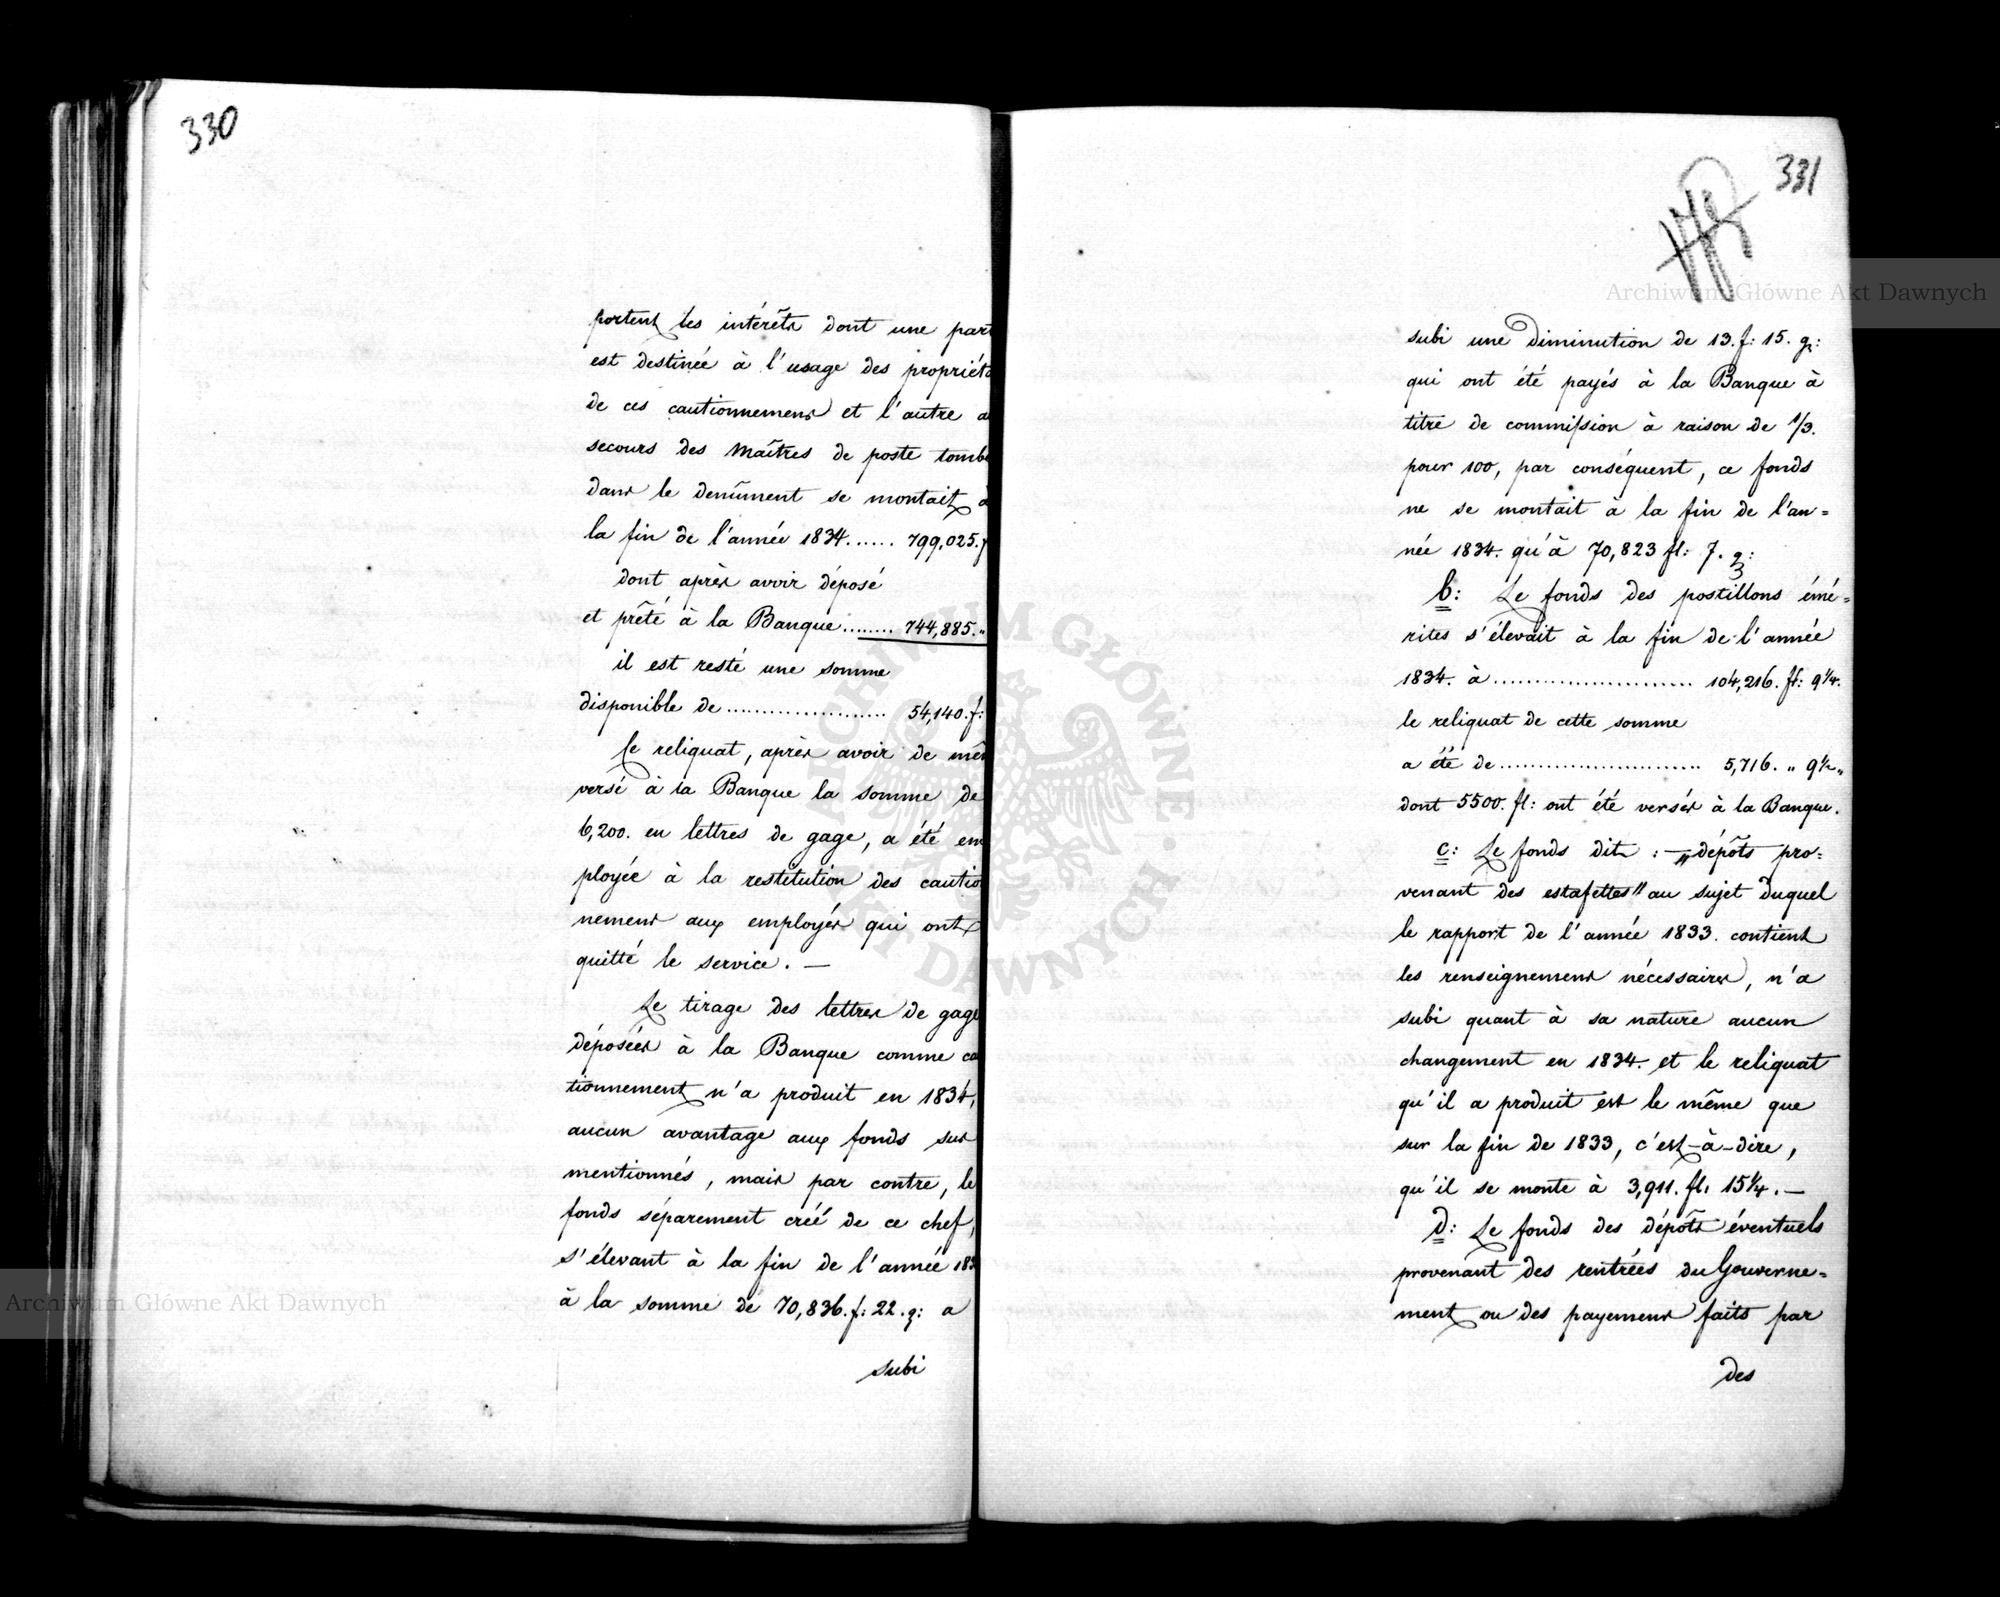 330
portent les intérêts dont une part
est destinée à l'usage des propriét
de ces cautionnemens et l'autre a
secours des Maîtres de poste tomb
dans le denûment se montait à
la fin de l'année 1834...... 799,025. f
dont après avoir déposé
et prêté à la Banque........ 744,885. "
il est resté une somme
disponible de ..................... 54,140. f:
Ce reliquat, après avoir de mê
versé à la Banque la somme de
6,200. en lettres de gage, a été em
ployée à la restitution des cautio
nemens aux employés qui ont
quitté le service. —
Le tirage des lettres de gage
déposées à la Banque comme ca
tionnement n'a produit en 1834,
aucun avantage aux fonds sus
mentionnés, mais par contre, le
fonds séparement créé de ce chef,
s'élevant à la fin de l'année 183
à la somme de 70,836. f: 22. g: a
subi
331
subi une diminution de 13. f: 15. gr:
qui ont été payés à la Banque à
titre de commission à raison de 1/3.
pour 100, par conséquent, ce fonds
ne se montait à la fin de l'an=
née 1834. qu'à 70,823 fl: 7. g:
b: Le fonds des postillons émé=
rites s'élevait à la fin de l'année
1834. à .......................... 104,216. fl: 9 1/4.
le reliquat de cette somme
a été de .......................... 5,716. " 9 1/2 "
dont 5500. fl: ont été versés à la Banque.
c: Le fonds dit : — "dépôts pro=
venant des estafettes" au sujet duquel
le rapport de l'année 1833. contient
les renseignemens nécessaires, n'a
subi quant à sa nature aucun
changement en 1834. et le reliquat
qu'il a produit est le même que
sur la fin de 1833, c'est-à-dire,
qu'il se monte à 3,911. fl: 15 1/4. —
d: Le fonds des dépôts éventuels
provenant des rentrées du Gouverne=
ment ou des payemens faits par
des
Archiwum Główne Akt Dawnych
Archiwum Główne Akt Dawnych
ARCHIWUM GŁÓWNE · AKT DAWNYCH ·